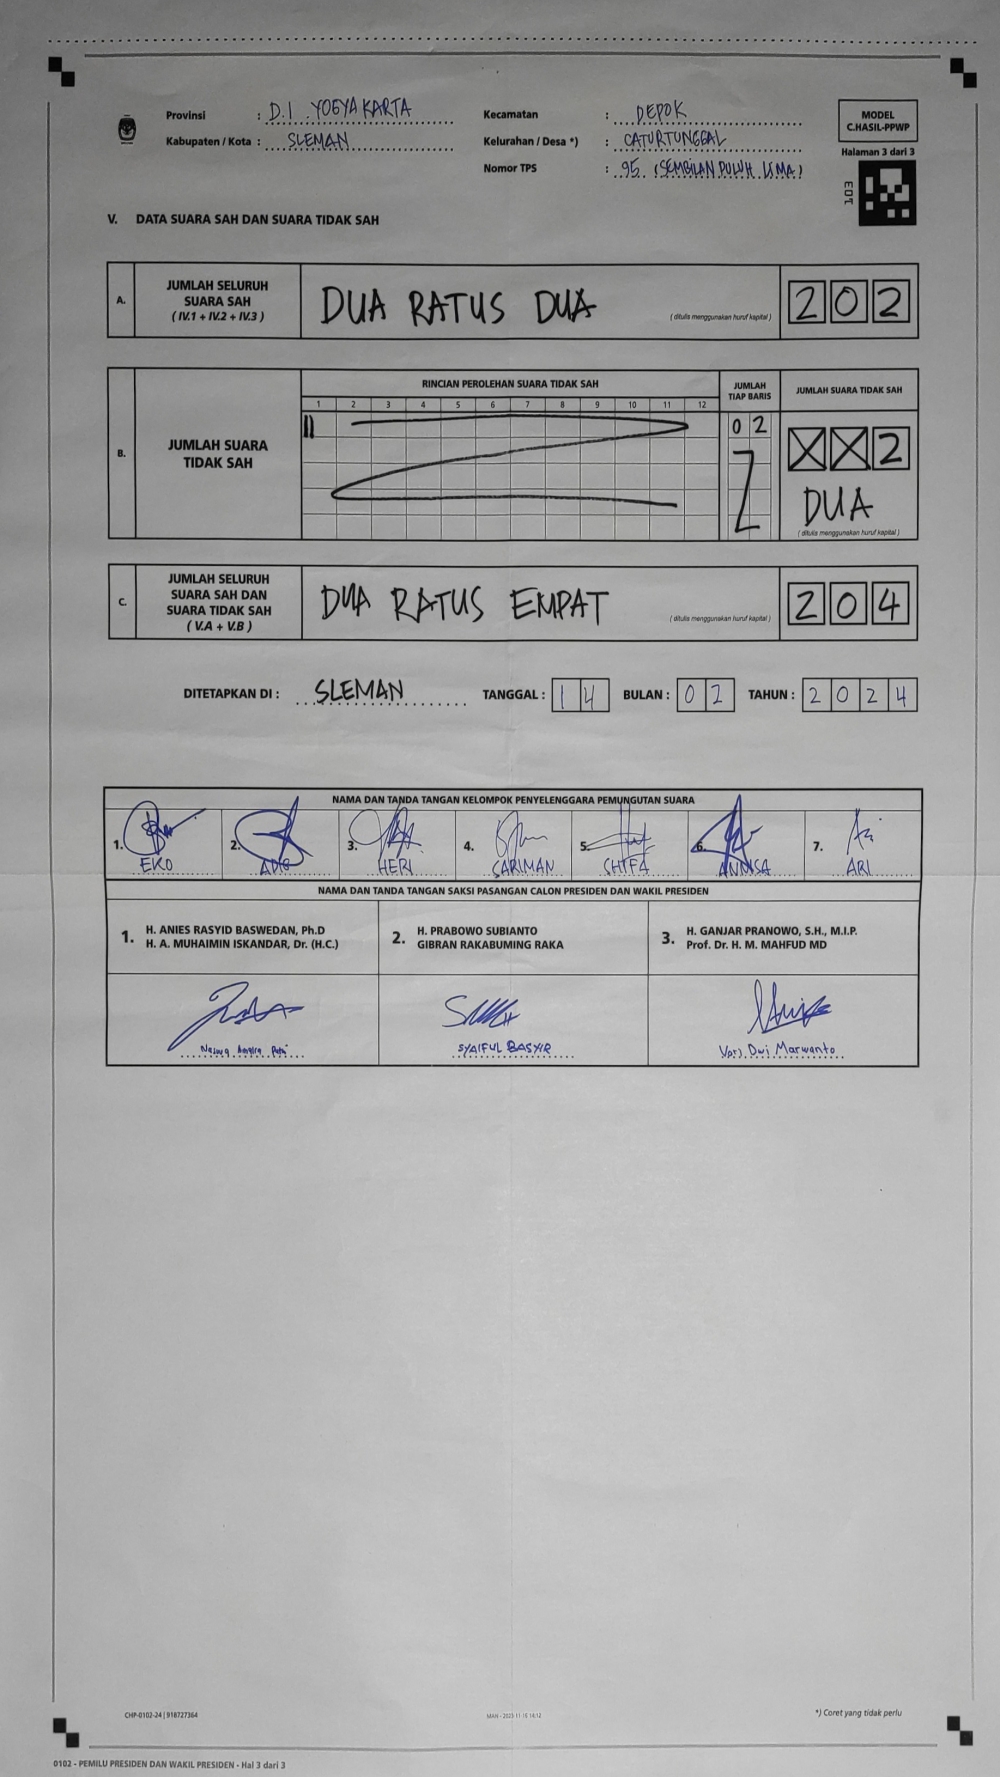 Provinsi : D.I. YOGYAKARTA
Kabupaten / Kota : SLEMAN
Kecamatan : DEPOK
Kelurahan / Desa *) : CATURTUNGGAL
Nomor TPS : 95 (SEMBILAN PULUH LIMA)
MODEL
C.HASIL-PPWP
Halaman 3 dari 3
V. DATA SUARA SAH DAN SUARA TIDAK SAH
A. JUMLAH SELURUH
SUARA SAH
( IV.1 + IV.2 + IV.3 )
DUA RATUS DUA
( ditulis menggunakan huruf kapital )
2 0 2
B. JUMLAH SUARA
TIDAK SAH
RINCIAN PEROLEHAN SUARA TIDAK SAH
1 2 3 4 5 6 7 8 9 10 11 12
JUMLAH
TIAP BARIS
0 2
JUMLAH SUARA TIDAK SAH
X X 2
DUA
( ditulis menggunakan huruf kapital )
C. JUMLAH SELURUH
SUARA SAH DAN
SUARA TIDAK SAH
( V.A + V.B )
DUA RATUS EMPAT
( ditulis menggunakan huruf kapital )
2 0 4
DITETAPKAN DI : SLEMAN TANGGAL : 1 4 BULAN : 0 2 TAHUN : 2 0 2 4
NAMA DAN TANDA TANGAN KELOMPOK PENYELENGGARA PEMUNGUTAN SUARA
1. EKO
2.
3. HERI
4. SARIMAN
5. SHIFA
6. ANNISA
7. ARI
NAMA DAN TANDA TANGAN SAKSI PASANGAN CALON PRESIDEN DAN WAKIL PRESIDEN
1. H. ANIES RASYID BASWEDAN, Ph.D
H. A. MUHAIMIN ISKANDAR, Dr. (H.C.)
2. H. PRABOWO SUBIANTO
GIBRAN RAKABUMING RAKA
3. H. GANJAR PRANOWO, S.H., M.I.P.
Prof. Dr. H. M. MAHFUD MD
SYAIFUL BASYIR
Dwi Marwanto
CHP-0102-24 | 918727364
*) Coret yang tidak perlu
0102 - PEMILU PRESIDEN DAN WAKIL PRESIDEN - Hal 3 dari 3